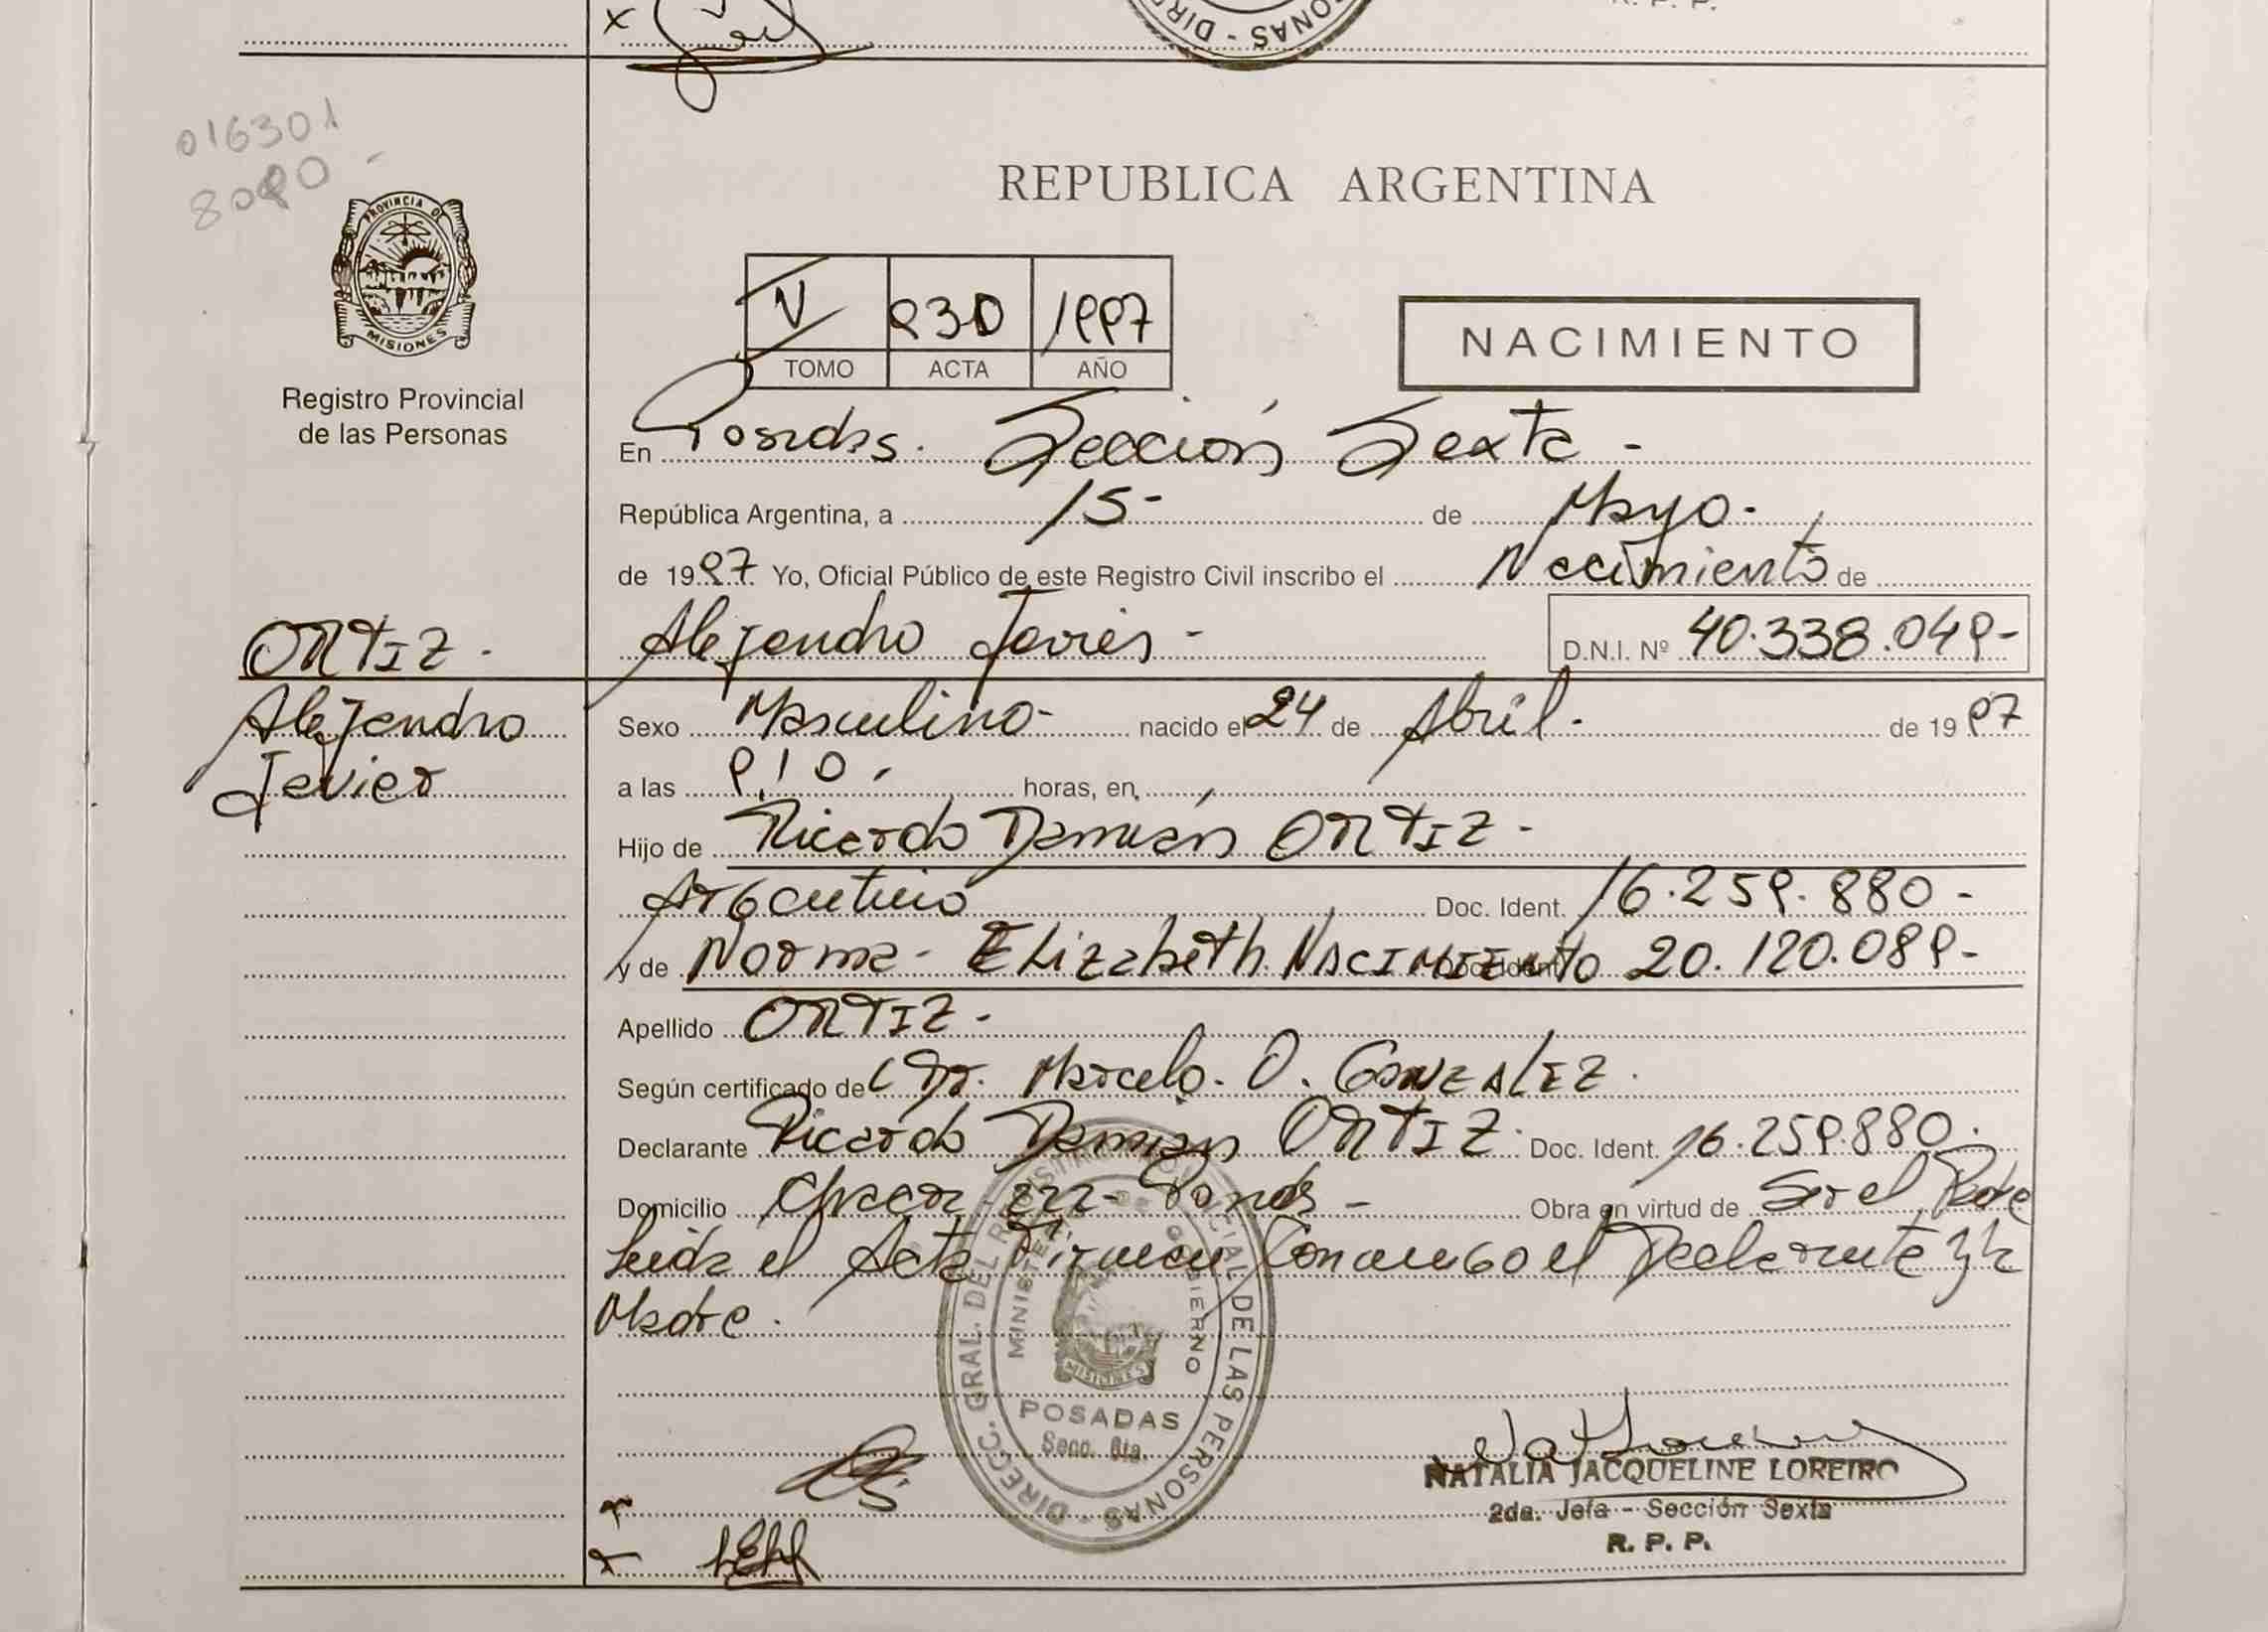 DIRE
ONAS - DIR
R. P. P.
016301
8090 -
PROVINCIA DE
MISIONES
Registro Provincial
de las Personas
REPUBLICA ARGENTINA
V 930 1997
TOMO ACTA AÑO
NACIMIENTO
En Posadas. Sección Sexta -
República Argentina, a 15- de Mayo.
de 1997 Yo, Oficial Público de este Registro Civil inscribo el Nacimiento de
ORTIZ. Alejandro Javier - D.N.I. Nº 40.338.049-
Alejandro Sexo Masculino- nacido el 24 de Abril. de 1997
Javier a las 9,10, horas, en,
Hijo de Ricardo Damián ORTIZ -
Argentino Doc. Ident. 16.259.880 -
y de Norma - Elizabeth NACIMIENTO 20.120.089-
Apellido ORTIZ -
Según certificado de Dr. Marcelo. O. GONZALEZ.
Declarante Ricardo Damián ORTIZ. Doc. Ident. 16.259.880.
Domicilio Posadas - Obra en virtud de Ser el Padre
Leída el Acta Firman Conmigo el Declarante y la
Madre.
DIRECC. GRAL. DEL REGISTRO PROVINCIAL DE LAS PERSONAS -
MINISTERIO DE GOBIERNO
MISIONES
POSADAS
Secc. 6ta.
NATALIA JACQUELINE LOREIRO
2da. Jefa - Sección Sexta
R. P. P.